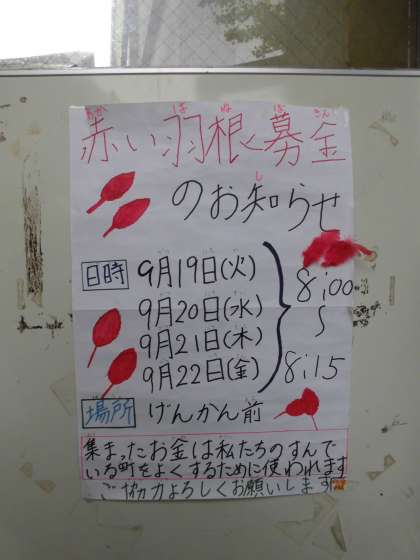 赤い羽根募金
のお知らせ
日時 9月19日(火)
9月20日(水)
9月21日(木)
9月22日(金)
8:00
〜
8:15
場所 げんかん前
集まったお金は私たちのすんで
いる町をよくするために使われます
ご協力よろしくお願いします